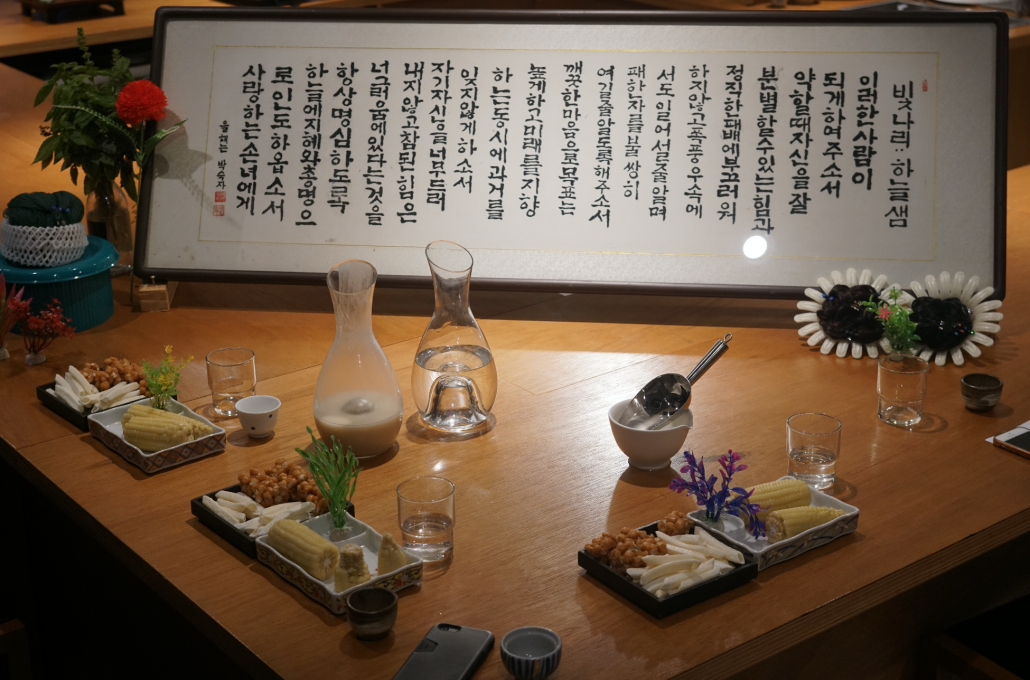 빛나리: 하늘샘
이러한사람이
되게하여주소서
약할때자신을잘
분별할수있는힘과
정직한패배에부끄러워
하지않고폭풍우속에
서도일어설줄알며
패한자를불쌍히
여길줄알도록해주소서
깨끗한마음으로목표는
높게하고미래를지향
하는동시에과거를
잊지않게하소서
자기자신을너무드러
내지않고참된힘은
너그러움에있다는것을
항상명심하도록
하늘에지혜와총명으
로인도하옵소서
사랑하는손녀에게
박숙자